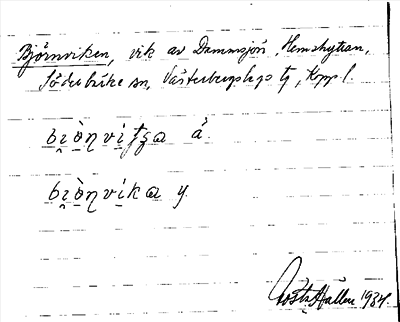 Björnviken, vik av Dammsjön, Hemshyttan,
Söderbärke sn, Västerbergslags tg, Kopp l.
bi̯ònviʈʂa å.
bi̯ònvika y.
Gösta Hallen 1934.